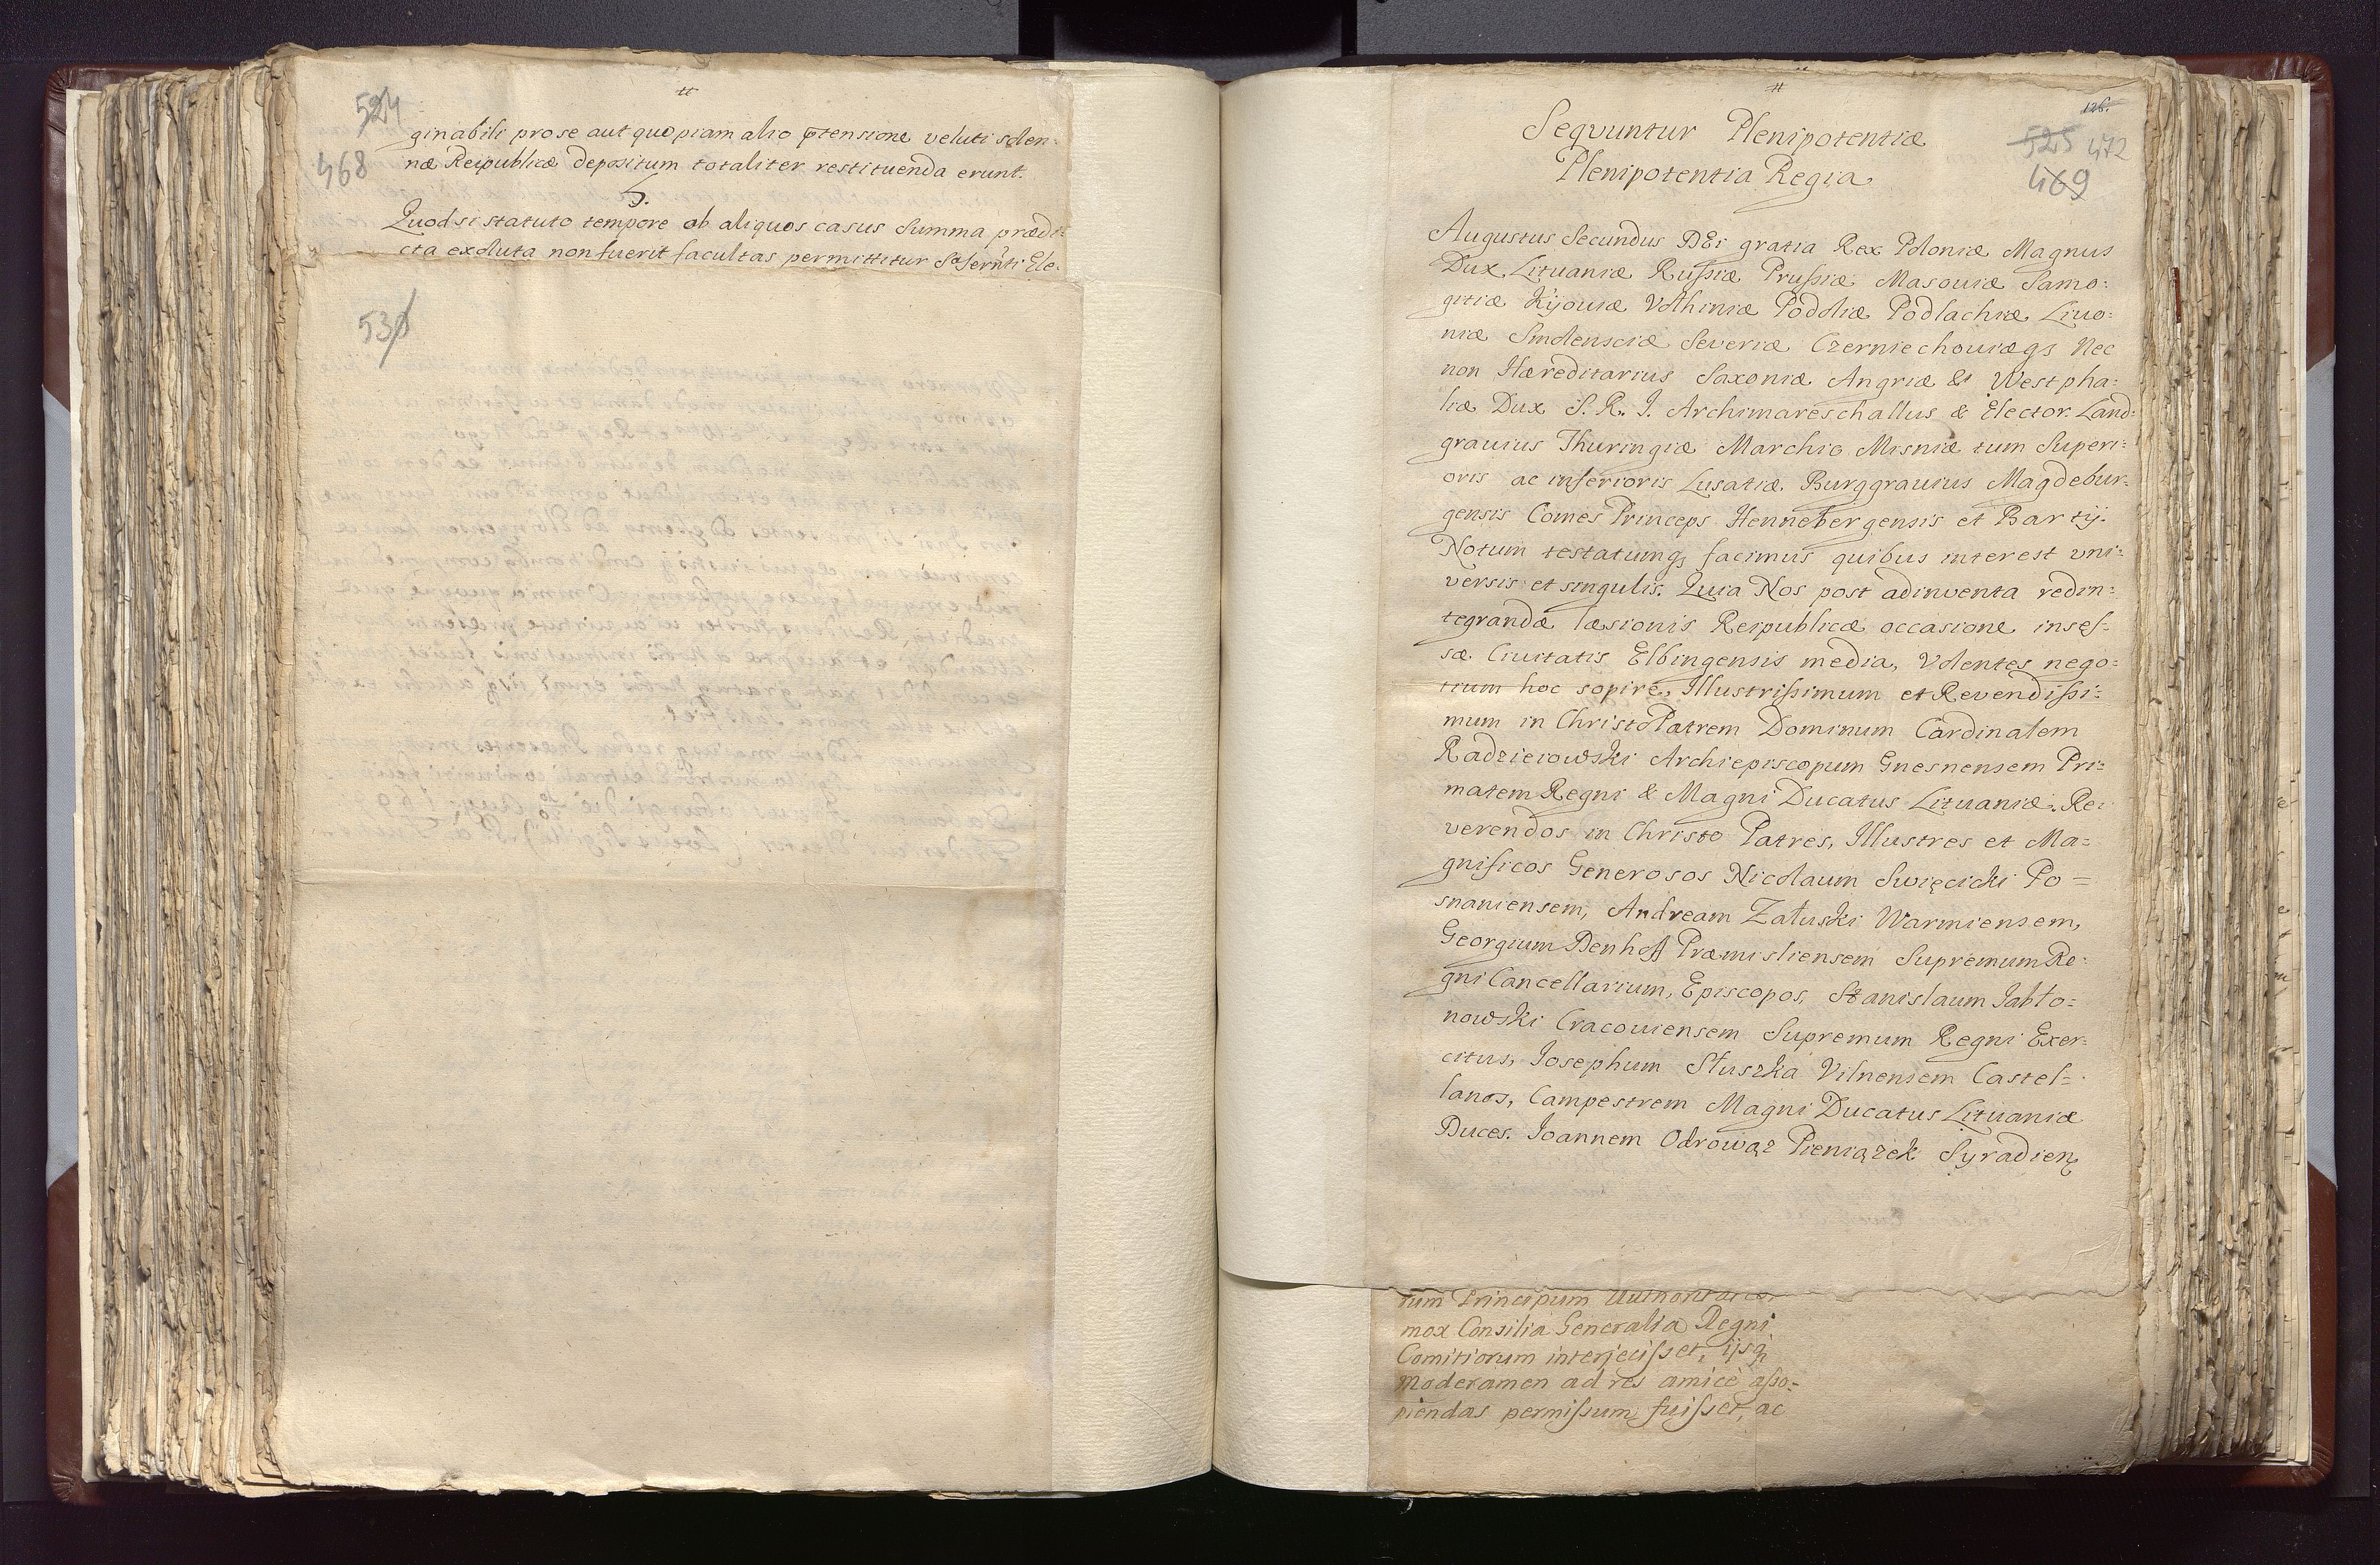 #
524
468
ginabili pro se aut quopiam alio ptensione veluti solen:
næ Reipublicæ depositum totaliter restituenda erunt.
5.
Quod si statuto tempore ob aliquos casus Summa prædi:
cta exoluta non fuerit facultas permittitur Sa Sernti Ele:
530
#
126.
525 472
469
Seqvuntur Plenipotentiæ
Plenipotentia Regia
Augustus Secundus DEi gratia Rex Poloniæ Magnus
Dux Lituaniæ Russiæ Prussiæ Masouiæ Samo:
gitiæ Kijouiæ Volhiniæ Podoliæ Podlachiæ Liuo:
niæ Smolensciæ Severiæ Czerniechouiæqs Nec
non Hæreditarius Saxoniæ Angriæ & Westpha:
liæ Dux S. R. I. Archimareschallus & Elector. Land:
grauius Thuringiæ Marchio Misniæ tum Superi:
oris ac inferioris Lusatiæ Burggrauius Magdebur:
gensis Comes Princeps Hennebergensis et Bartij.
Notum testatumq, facimus quibus interest vni:
versis et singulis. Quia Nos post adinventa redin:
tegrandæ læsionis Reipublicæ occasione insęs:
sæ Ciuitatis Elbingensis media, Volentes nego:
tium hoc sopire, Illustrissimum et Revendissi:
mum in Christo Patrem Dominum Cardinalem
Radzieiowski Archiepiscopum Gnesnensem Pri:
matem Regni & Magni Ducatus Lituaniæ. Re:
verendos in Christo Patres, Illustres et Ma:
gnificos Generosos Nicolaum Swięcicki Po=
snaniensem, Andream Załuski Warmiensem,
Georgium Denhoff Præmisliensem Supremum Re:
gni Cancellarium, Episcopos, Stanislaum Jabło:
nowski Cracouiensem Supremum Regni Exer:
citus, Josephum Słuszka Vilnensem Castel=
lanos, Campestrem Magni Ducatus Lituaniæ
Duces. Joannem Odrowąz Pieniązek Syradien
rum Principum
mox Consilia Generalia Regni
Comitiorum interjecisset, ijsq
moderamen ad res amicè asso:
piendas permissum fuisset, ac